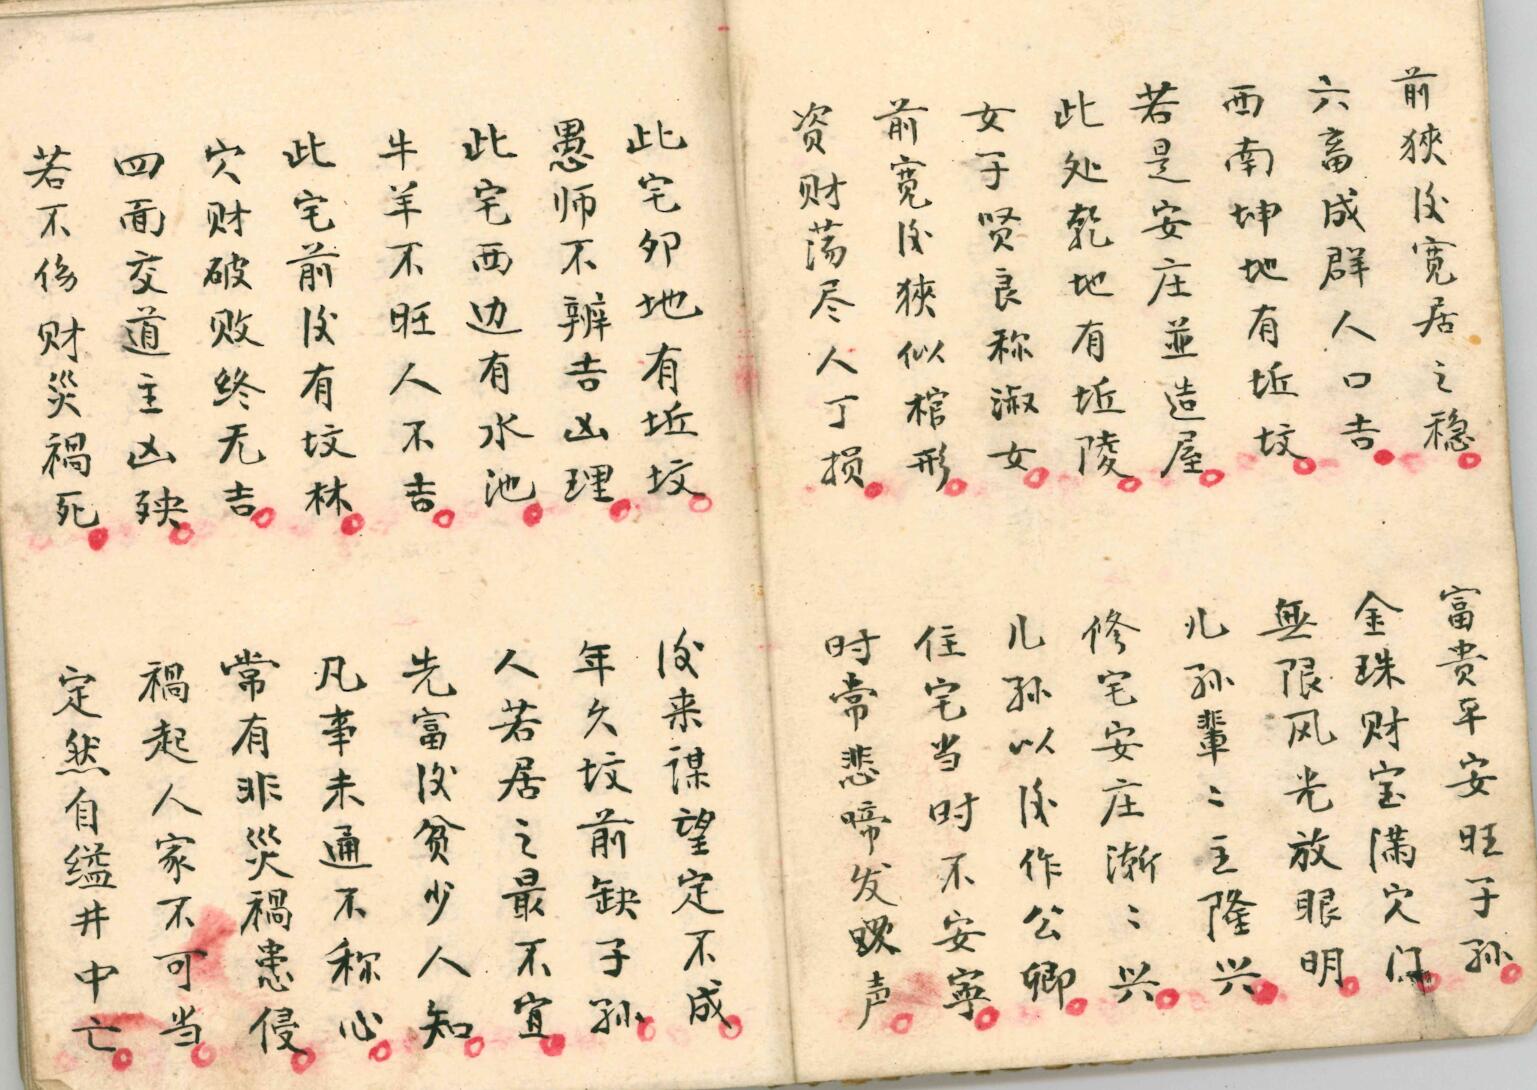 前狹後寛居之穏
富貴平安旺子孙
六畜成群人口吉
金珠财宝满穴门
西南坤地有坵坟
無限风光放眼明
若是安庄並造屋
儿孙輩〻主隆兴
此处乾地有坵陵
修宅安庄渐〻兴
女子贤良称淑女
儿孙以後作公卿
前寛後狹似棺形
住宅当时不安寧
资财荡尽人丁损
时常悲啼发嘆声
此宅卯地有坵坟
後来谋望定不成
愚师不辨吉凶理
年久坟前缺子孙
此宅西边有水池
人若居之最不宜
牛羊不旺人不吉
先富後贫少人知
此宅前後有坟林
凡事未通不称心
穴财破败终无吉
常有非災禍患侵
四面交道主凶殃
禍起人家不可当
若不伤财災禍死
定然自缢井中亡